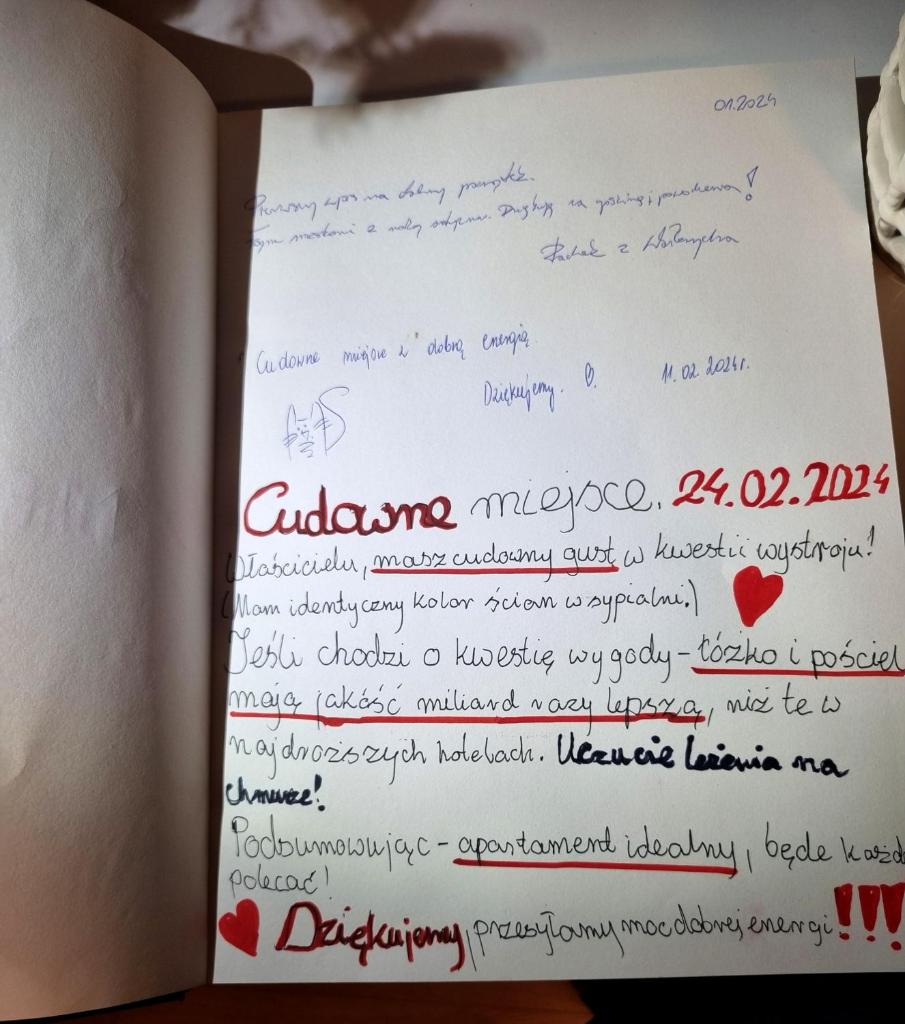 01.2024
Pierwszy wpis na dobry początek.
z
Dziękuję za gościnę i !
z Wałbrzycha
Cudowne miejsce z dobrą energią.
Dziękujemy. 11.02.2024r.
Cudowne miejsce. 24.02.2024
Właścicielu, masz cudowny gust w kwestii wystroju!
(Mam identyczny kolor ścian w sypialni.)
Jeśli chodzi o kwestię wygody - łóżko i pościel
mają jakość miliard razy lepszą, niż te w
najdroższych hotelach. Uczucie leżenia na
chmurze!
Podsumowując - apartament idealny, będe każd
polecać!
Dziękujemy, przesyłamy moc dobrej energi!!!